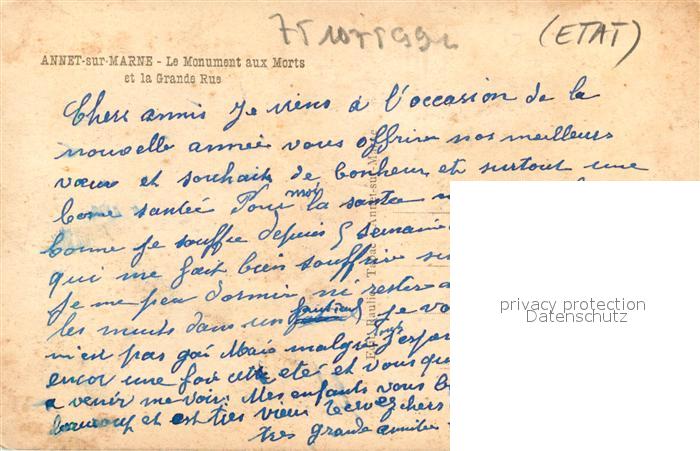 (ETAT)
ANNET-sur-MARNE - Le Monument aux Morts
et la Grande Rue
Chers amis Je viens à l'occasion de la
nouvelle année vous offrire nos meilleurs
vœux et souhaits de bonheur et surtout une
bone santée Pour moi la santé
bonne je souffre depuis 5 semaine
qui me fait bien souffrire
Je ne peu dormir ni rester
les nuits dans un fauteuil je
n'est pas gai Mais malgré tous j'espe
encor une fois cette eté et vous
a venir me voir. Mes enfants vous
beaucoup et est tres vieux chers
tres grande amitiés
privacy protection
Datenschutz